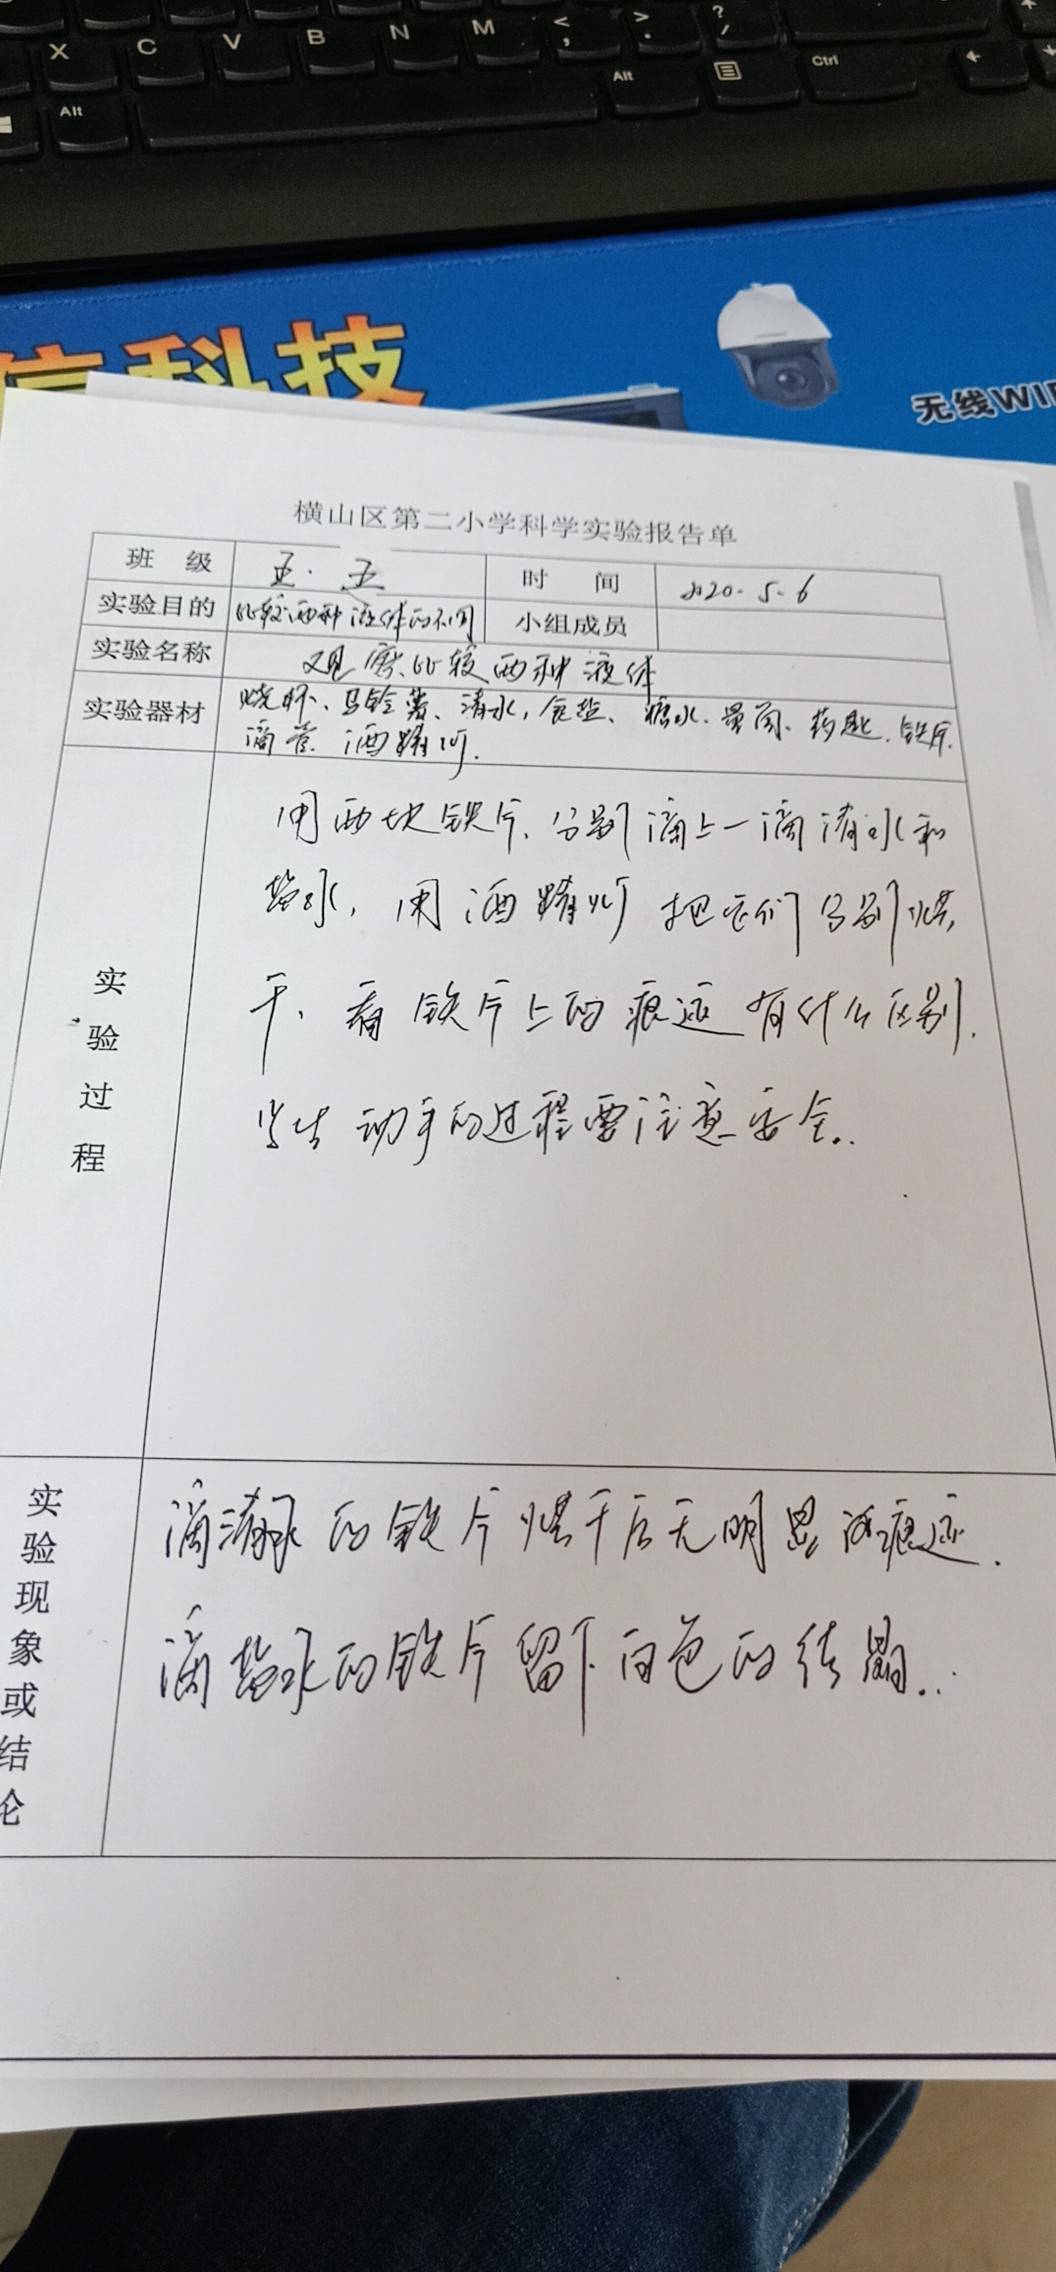 X C V B N M < , > . ? /
Alt Alt Ctrl
信科技
无线WIF
横山区第二小学科学实验报告单
班 级 五.五 时 间 2020-5-6
实验目的 比较两种液体的不同 小组成员
实验名称 观察比较两种液体
实验器材 烧杯、马铃薯、清水,食盐、糖水.量筒、药匙.铁片.
滴管.酒精灯.
实验过程
用两块铁片、分别滴上一滴清水和
盐水,用酒精灯把它们分别烘
干、看铁片上的痕迹有什么区别.
学生动手的过程要注意安全..
实验现象或结论
滴清水的铁片烘干后无明显的痕迹.
滴盐水的铁片留下白色的结晶..